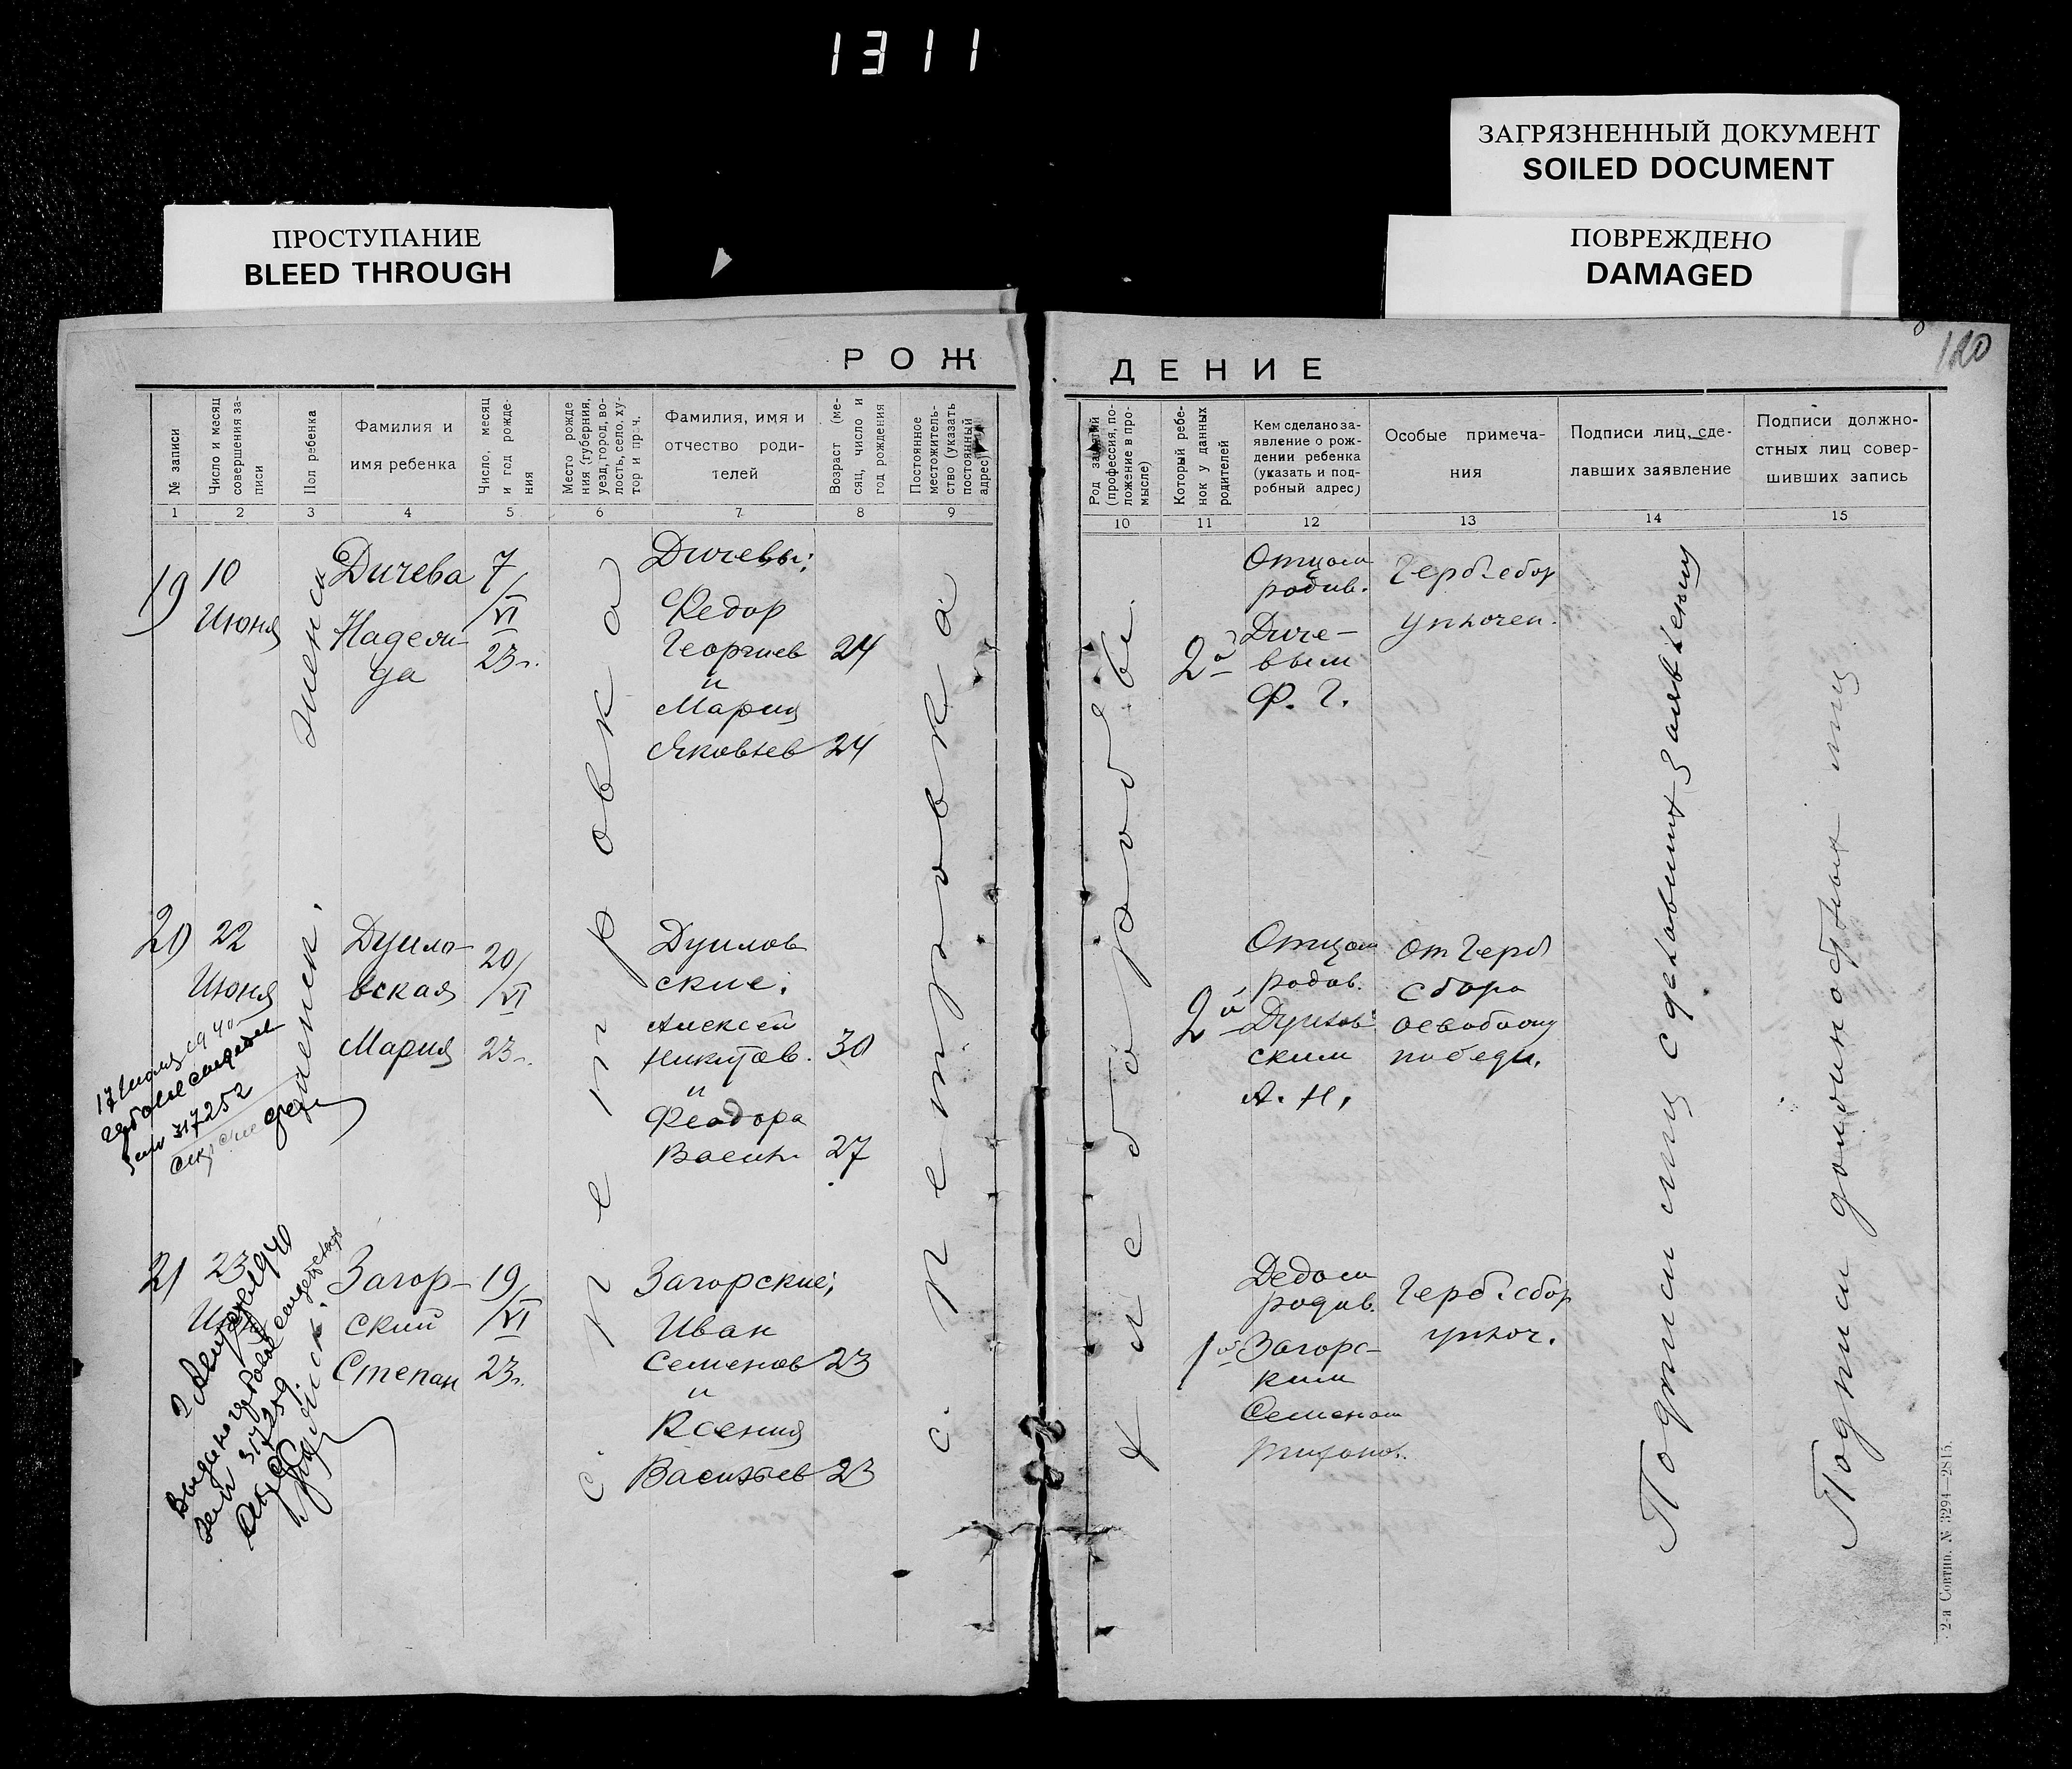 1311
ЗАГРЯЗНЕННЫЙ ДОКУМЕНТ
SOILED DOCUMENT
ПРОСТУПАНИЕ
BLEED THROUGH
ПОВРЕЖДЕНО
DAMAGED
120
РОЖ
ДЕНИЕ
№ записи
Число и месяц
совершения за-
писи
Пол ребенка
Фамилия и
имя ребенка
Число, месяц
и год рожде-
ния
Место рожде
ния (губерния,
уезд, город, во-
лость, село, ху-
тор и проч.
Фамилия, имя и
отчество роди-
телей
Возраст (ме-
сяц, число и
год рождения
Постоянное
местожитель-
ство (указать
постоянный
адрес)
Род занятий
(профессия, по-
ложение в про-
мысле)
Который ребе-
нок у данных
родителей
Кем сделано за-
явление о рож-
дении ребенка
(указать и под-
робный адрес)
Особые примеча-
ния
Подписи лиц, сде-
лавших заявление
Подписи должно-
стных лиц совер-
шивших запись
1 2 3 4 5 6 7 8 9
10 11 12 13 14 15
19
10
Июня
женск
Дичева
Надеж-
да
7/VI
23г.
с. Петровка
Дичевы:
Федор
Георгиев 24
и
Мария
Яковлев 24
с. Петровка
Хлебороб
2й
Отцом
родив.
Диче-
вым
Ф. Г.
Герб. сбор
уплочен.
Подписи лиц сделавших заявлению
Подписи должностных лиц
20
22
Июня
женск.
Дуило-
вская
Мария
20/VI
23г.
Дуилов
ские:
Алексей
Никитов. 30
и
Феодора
Васил. 27
2й
Отцом
родив.
ским
А. Н.
от Герб
сбора
17 Июля 1940
317252
21
23
Загор-
ский
Степан
19/VI
23г.
Загорские;
Иван
Семенов 23
и
Ксения
Васильев 23
1й
Дедом
родив.
Загорс-
ким
Семеном
Герб. сбор
уплоч.
1940
317259
2-я Совтип. № 3294—2815.